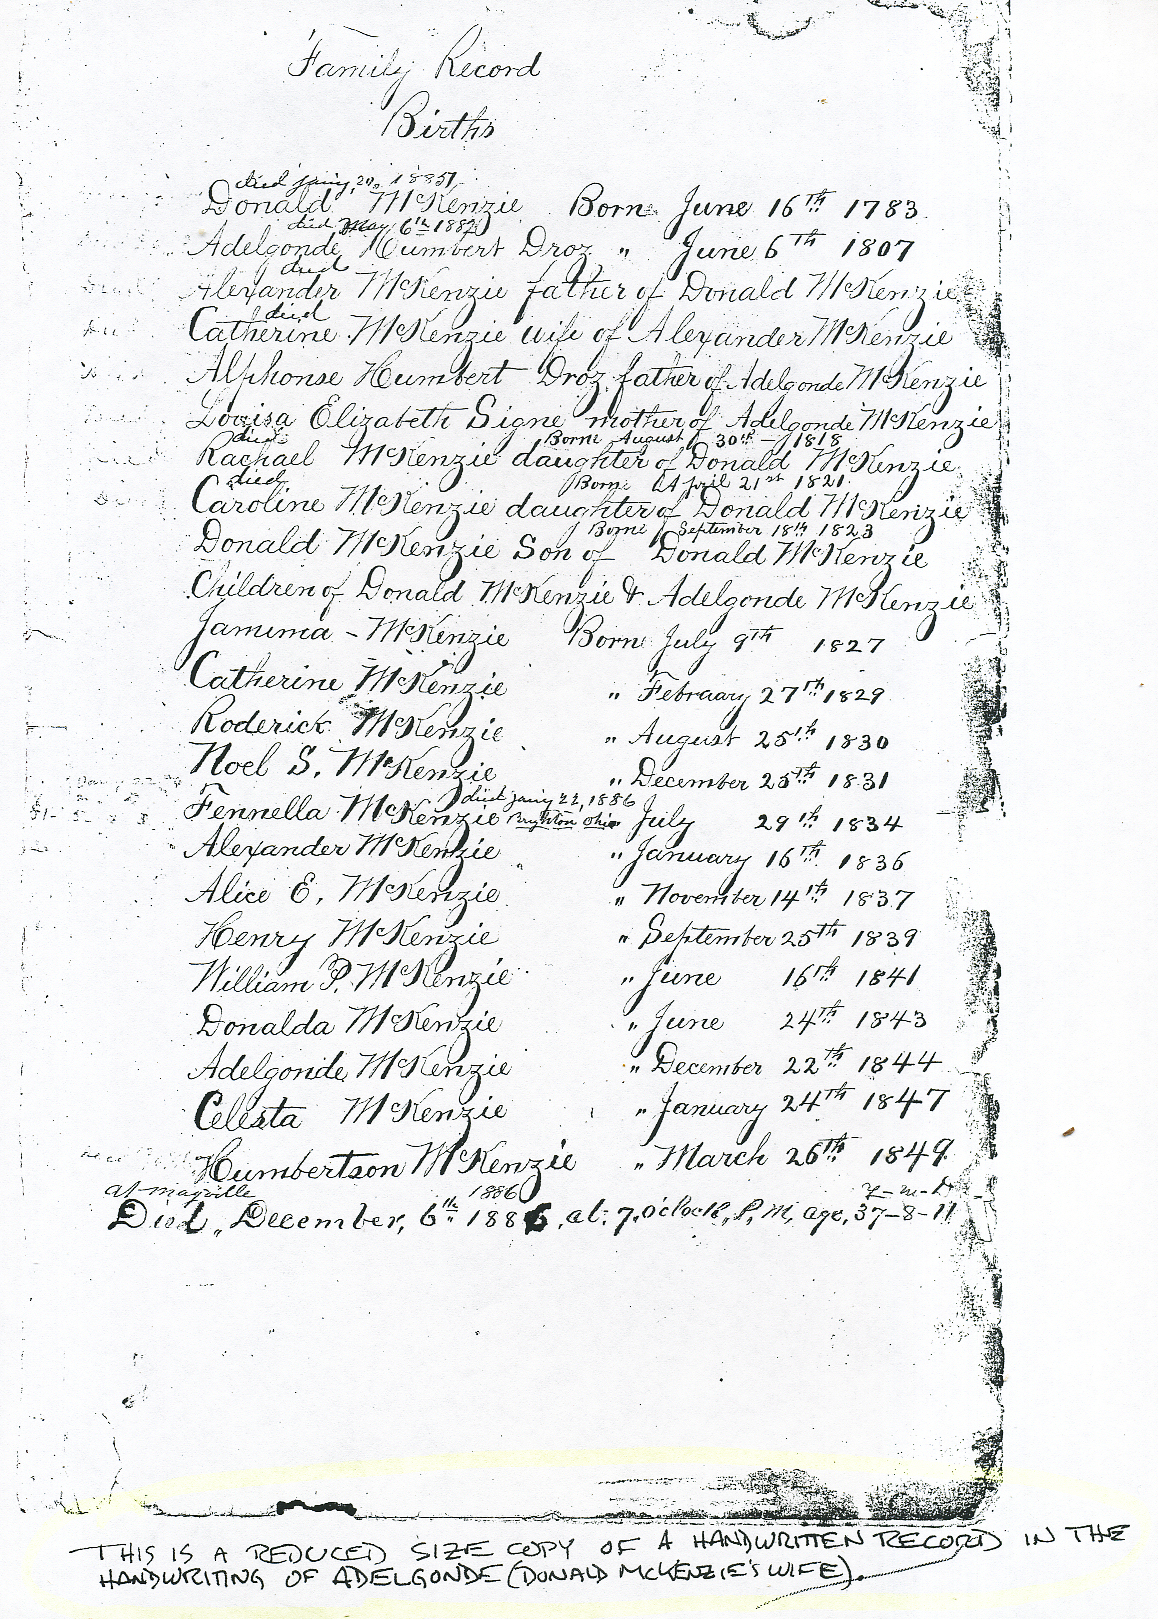 Family Record
Births
died jany, 20, 1851
Donald McKenzie Born June 16th 1783
died May 6th 1882
Adelgonde Humbert Droz " June 6th 1807
died
Alexander McKenzie father of Donald McKenzie
died
Catherine McKenzie wife of Alexander McKenzie
Alphonse Humbert Droz father of Adelgonde McKenzie
Lovisa Elizabeth Signe mother of Adelgonde McKenzie
died Borne August 30th 1818
Rachael McKenzie daughter of Donald McKenzie
died Borne April 21st 1821
Caroline McKenzie daughter of Donald McKenzie
Borne September 18th 1823
Donald McKenzie Son of Donald McKenzie
Children of Donald McKenzie & Adelgonde McKenzie
Jamima - McKenzie Born July 9th 1827
Catherine McKenzie " Febraary 27th 1829
Roderick McKenzie " August 25th 1830
Noel S. McKenzie " December 25th 1831
died jany 22, 1886
Fennella McKenzie Brighton Ohio July 29th 1834
Alexander McKenzie " January 16th 1836
Alice E. McKenzie " November 14th 1837
Henry McKenzie " September 25th 1839
William P. McKenzie " June 16th 1841
Donalda McKenzie " June 24th 1843
Adelgonde McKenzie " December 22th 1844
Celesta McKenzie " January 24th 1847
Humbertson McKenzie " March 26th 1849
at mayville 1886 y-m-d
Died, December, 6th 1886, at 7, o'clock, P, M, age, 37-8-11
THIS IS A REDUCED SIZE COPY OF A HANDWRITTEN RECORD IN THE
HANDWRITING OF ADELGONDE (DONALD MCKENZIE'S WIFE).